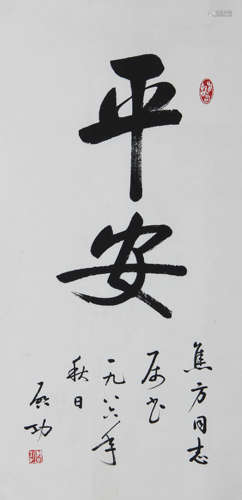 平安
焦方同志
属书
一九八六年
秋日
启功